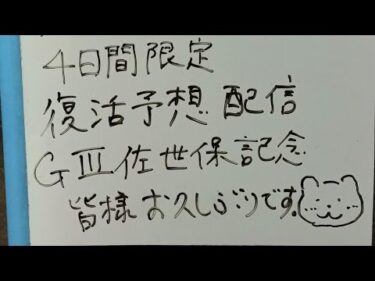 4日間限定
復活予想配信
GⅢ佐世保記念
皆様お久しぶりです。